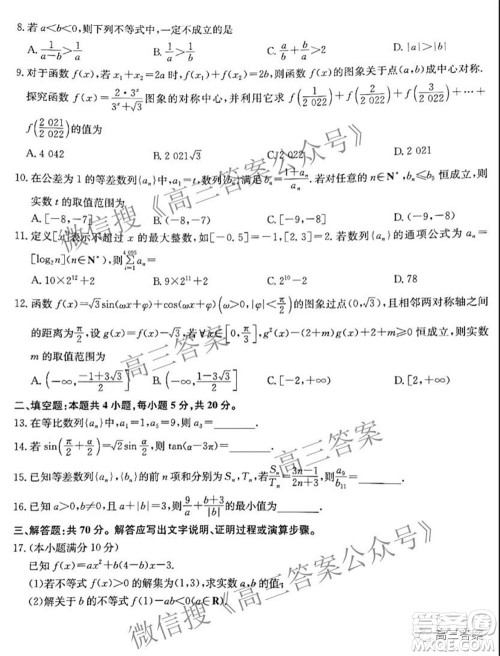 8. 若 a<b<0,则下列不等式中,一定不成立的是
A. 1/(a-b)>1/a B. 1/a>1/b C. a/b+b/a>2 D. |a|>|b|
9. 对于函数 f(x),若 x₁+x₂=2a 时,f(x₁)+f(x₂)=2b,则函数 f(x)的图象关于点(a,b)成中心对称.
探究函数 f(x)=(2·3ˣ)/(3ˣ+√3)图象的对称中心,并利用它求 f(1/2 022)+f(2/2 022)+f(3/2 022)+…+
f(2 021/2 022)的值为
A. 4 042 B. 2 021√3 C. 2 022 D. 2 021
10. 在公差为 1 的等差数列{aₙ}中,a₁=t,数列{bₙ}满足 bₙ=(1+aₙ)/aₙ. 若对任意的 n∈N*,bₙ≤b₉ 恒成立,则
实数 t 的取值范围为
A. [-8,-7] B. (-8,-7) C. [-9,-8] D. (-9,-8)
11. 定义[x]表示不超过 x 的最大整数,如[-0.5]=-1,[2.3]=2. 若数列{aₙ}的通项公式为 aₙ=
[log₂n](n∈N*),则 aₙ=
A. 10×2¹²+2 B. 9×2¹¹+2 C. 2¹⁰-2 D. 78
12. 函数 f(x)=√3sin(ωx+φ)+cos(ωx+φ)(ω>0,|φ|<π/2)的图象过点,且相邻两对称轴之间
的距离为π/2,设 g(x)=f(x)-√3,若∀x∈[0,π/3],g²(x)+mg(x)+m≥0 恒成立,则实数
m 的取值范围为
A. (-∞,(-1+3√3)/2] B. (-∞,(1-3√3)/2]
二、填空题:本题共 4 小题,每小题 5 分,共 20 分。
13. 在等比数列{aₙ}中,a₁=1,a₅=9,则 a₃=
14. 若 sin(π/2+α)=√2sin α,则 tan(α-3π)=
15. 已知等差数列{aₙ},{bₙ}的前 n 项和分别为 Sₙ,Tₙ,若 Sₙ/Tₙ=(3n-1)/(2n+3),则 a₉/b₁₁=
16. 已知 a>0,b≠0,且 a+|b|=3,则 9/a+(b+3)/|b| 的最小值为
三、解答题:共 70 分。解答应写出文字说明、证明过程或演算步骤。
17. (本小题满分 10 分)
已知 f(x)=ax²+b(4-b)x-3.
(1)若不等式 f(x)>0 的解集为(1,3),求实数 a,b 的值;
(2)解关于 b 的不等式 f(1)-ab<0(a∈R).
微信搜《高三答案公众号》
高三答案
微信搜《高三答案公众号》
高三答案